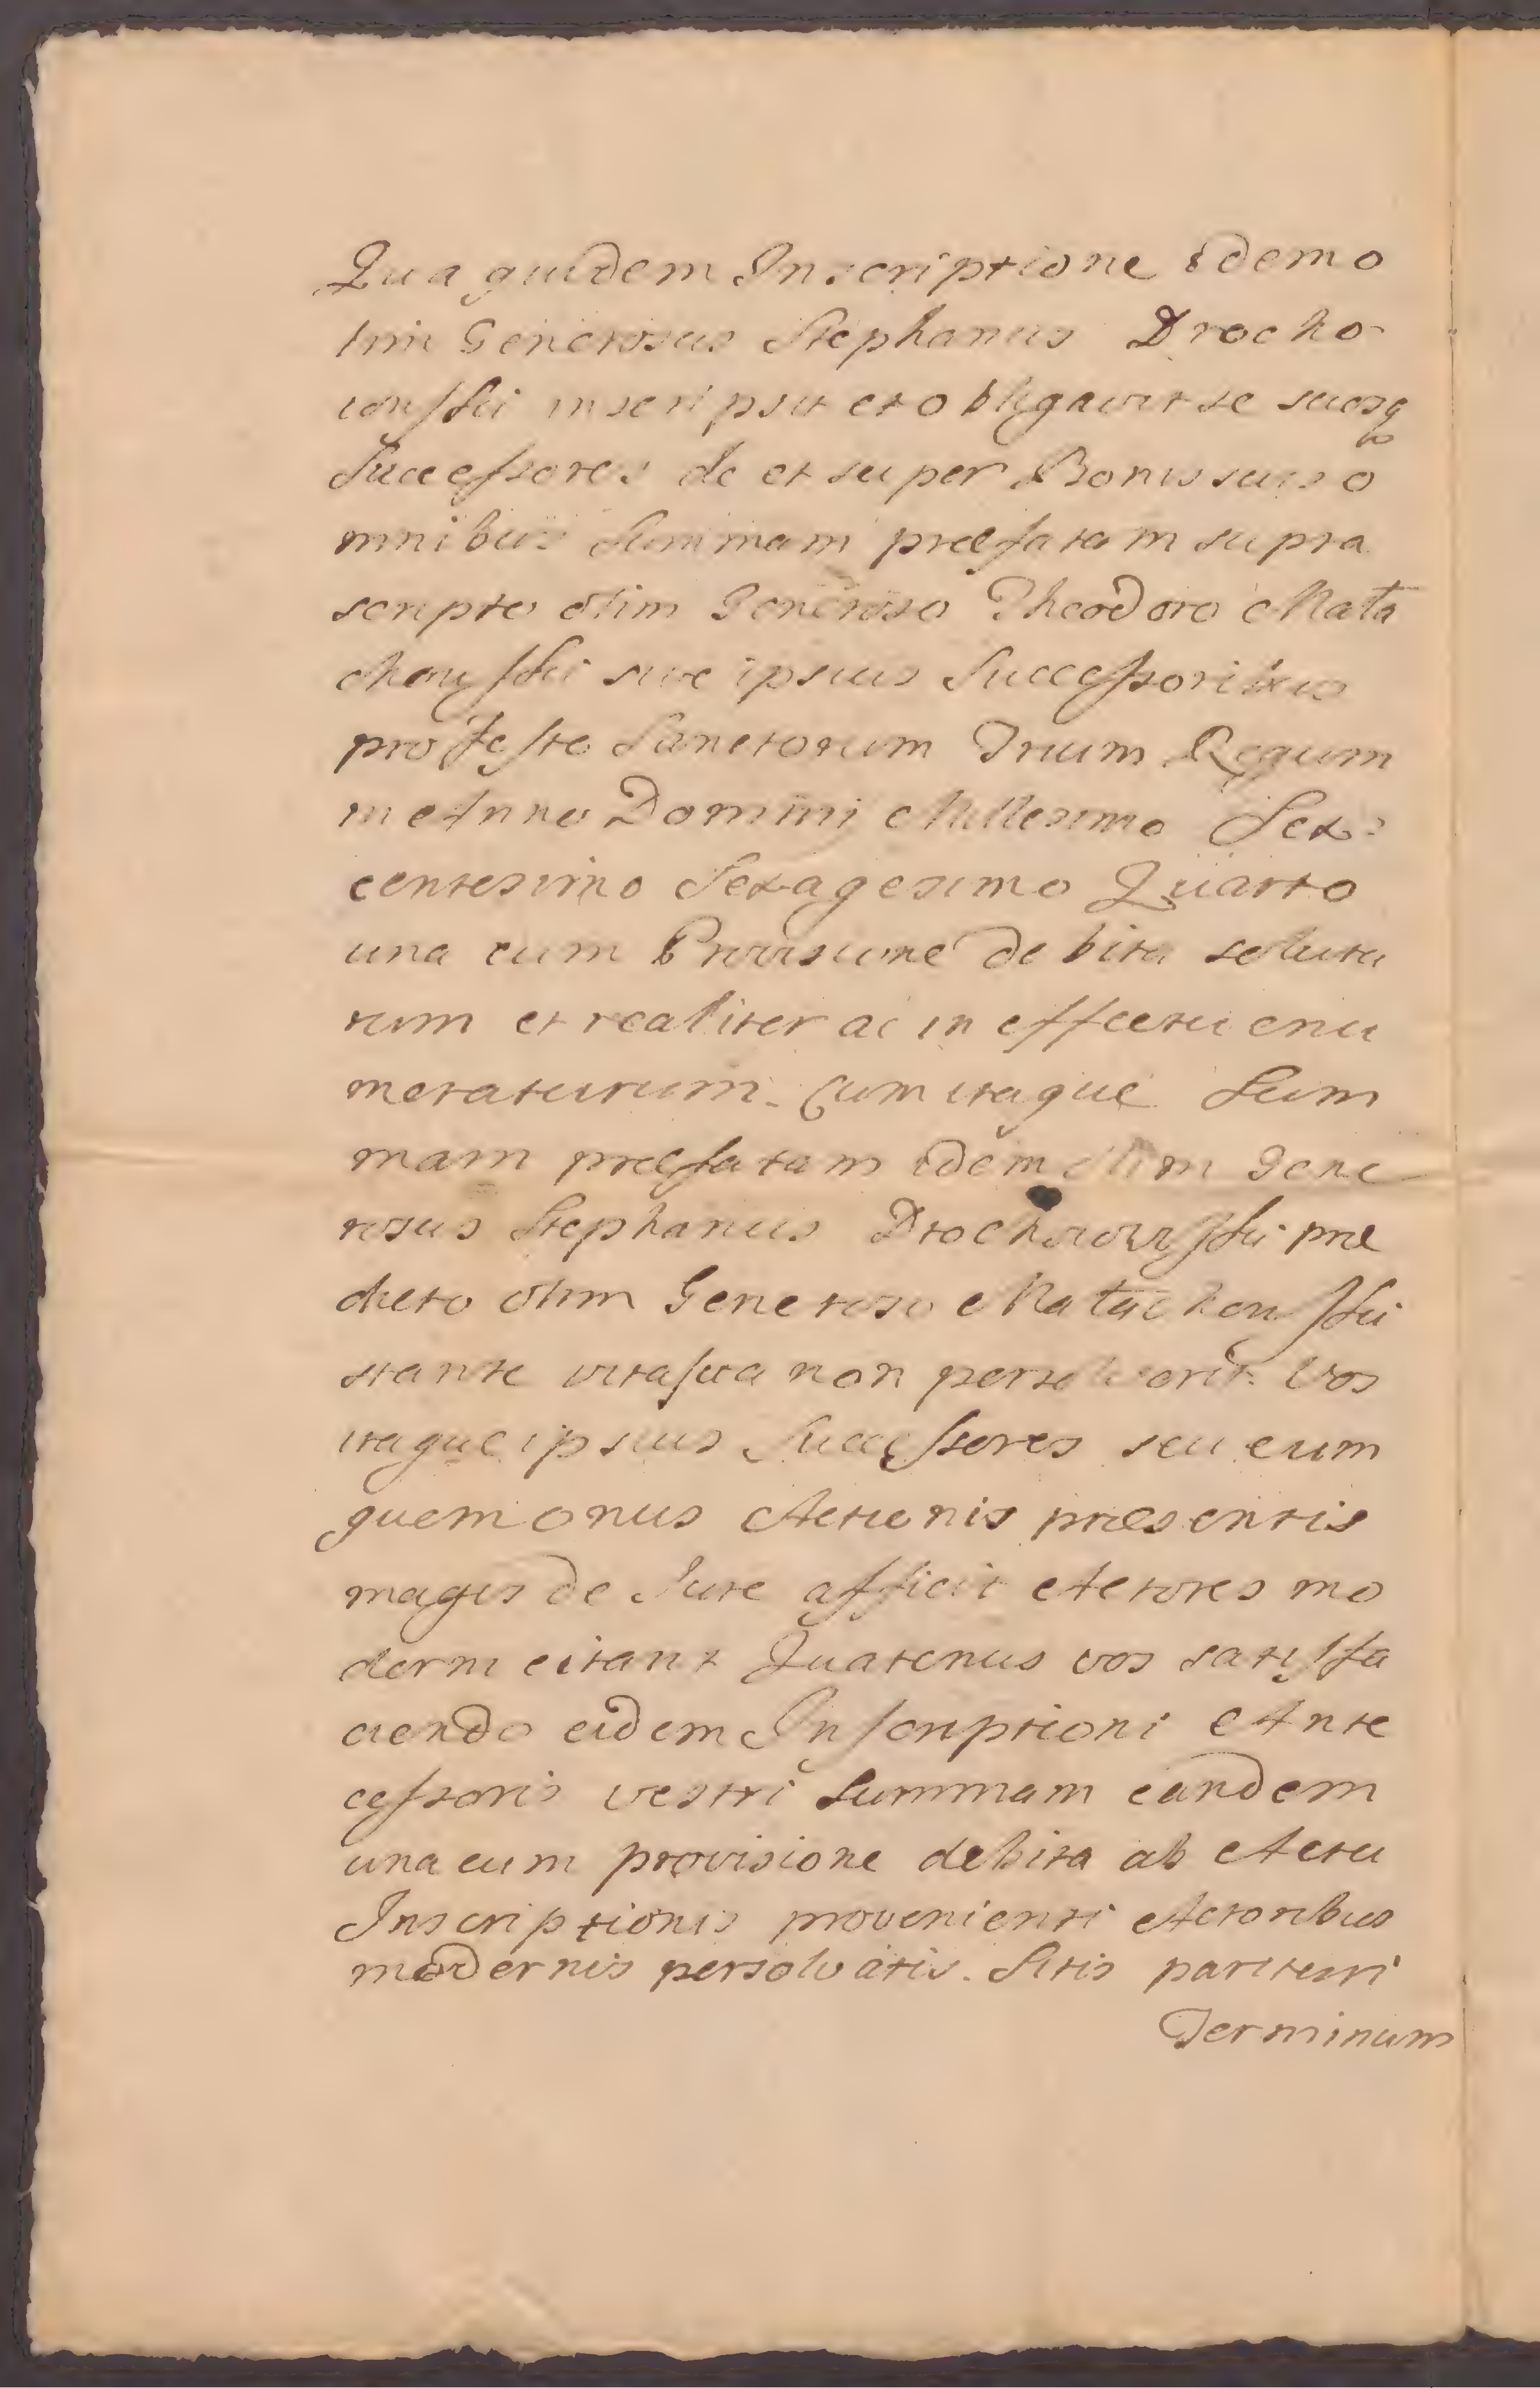 Qua quidem Inscriptione idem o
lim Generosus Stephanus Drocho
iowſski inscripsit et obligavit se suosq
Succeſsores de et super Bonis suis o
mnibus Summam præfatam supra
scripto olim Generoso Theodoro Mata
chowſski sive ipsius Succeſsoribus
pro Feſto Sanctorum Trium Regum
in Anno Domini Millesimo Sex
centesimo Sexagesimo Quarto
una cum Provisione debita solutu
rum et realiter ac in effectu enu
meraturum. Cum itaque Sum
mam præfatam idem olim Gene
rosus Stephanus Drochoiowſski præ
dicto olim Generoso Matachowſski
stante vita sua non persolverit. Vos
itaque ipsius Succeſsores seu eum
quem onus Actionis præsentis
magis de Jure afficit Actores mo
derni citant Quatenus vos satisfa
ciendo eidem Inſcriptioni Ante
ceſsoris vestri Summam eandem
una cum provisione debita ab Actu
Inscriptionis provenienti Actoribus
modernis persolvatis. Sitis parituri
Terminum